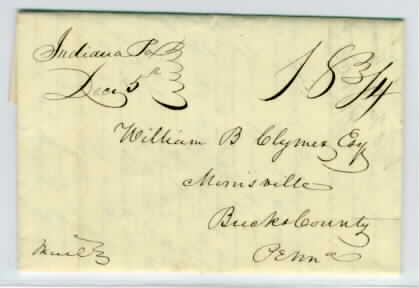 Indiana Pa
Decr 5th
18 3/4
William B Clymer Esq
Morrisville
Bucks County
Penna